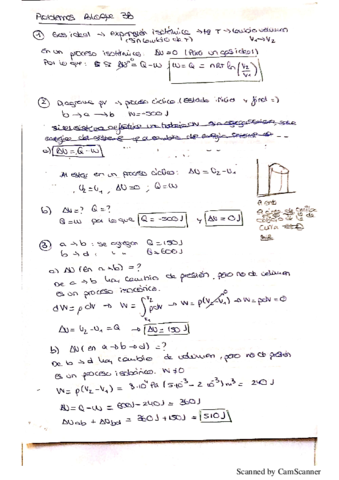 ① Gas ideal → expansión isotérmica → cte T → cambio volumen
(sin cambio de T) V₁→V₂
En un proceso isotérmico: ΔU=0 (Para un gas ideal)
Por lo que: ΔU = Q-W W=Q = nRT ln(V₂/V₁)
② Diagrama pV → proceso cíclico (Estado inicial y final =)
b → a → b W=-500J
a) ΔU=Q-W
Al estar en un proceso cíclico: ΔU = U₂-U₁
U₂=U₁, ΔU=0; Q=W
b) ΔU=? Q=?
Q=W por lo que Q=-500J y ΔU=0J
③ a → b: se agregan Q=150J
b → d: " " Q=600J
a) ΔU (en a→b) =?
De a → b hay cambio de presión, pero no de volumen
Es un proceso isocórico.
dW = p dV → W = ∫ p dV → W = p(V₂-V₁) → W = pdV = 0
ΔU = U₂-U₁ = Q → ΔU = 150J
b) ΔU (en a→b→d) =?
De b → d hay cambio de volumen, pero no de presión
Es un proceso isobárico. W≠0
W = p(V₂-V₁) = 8·10⁴ Pa (5·10⁻³ - 2·10⁻³) m³ = 240J
ΔU = Q-W = 600J - 240J = 360J
ΔUab + ΔUbd = 360J + 150J = 510J
Scanned by CamScanner